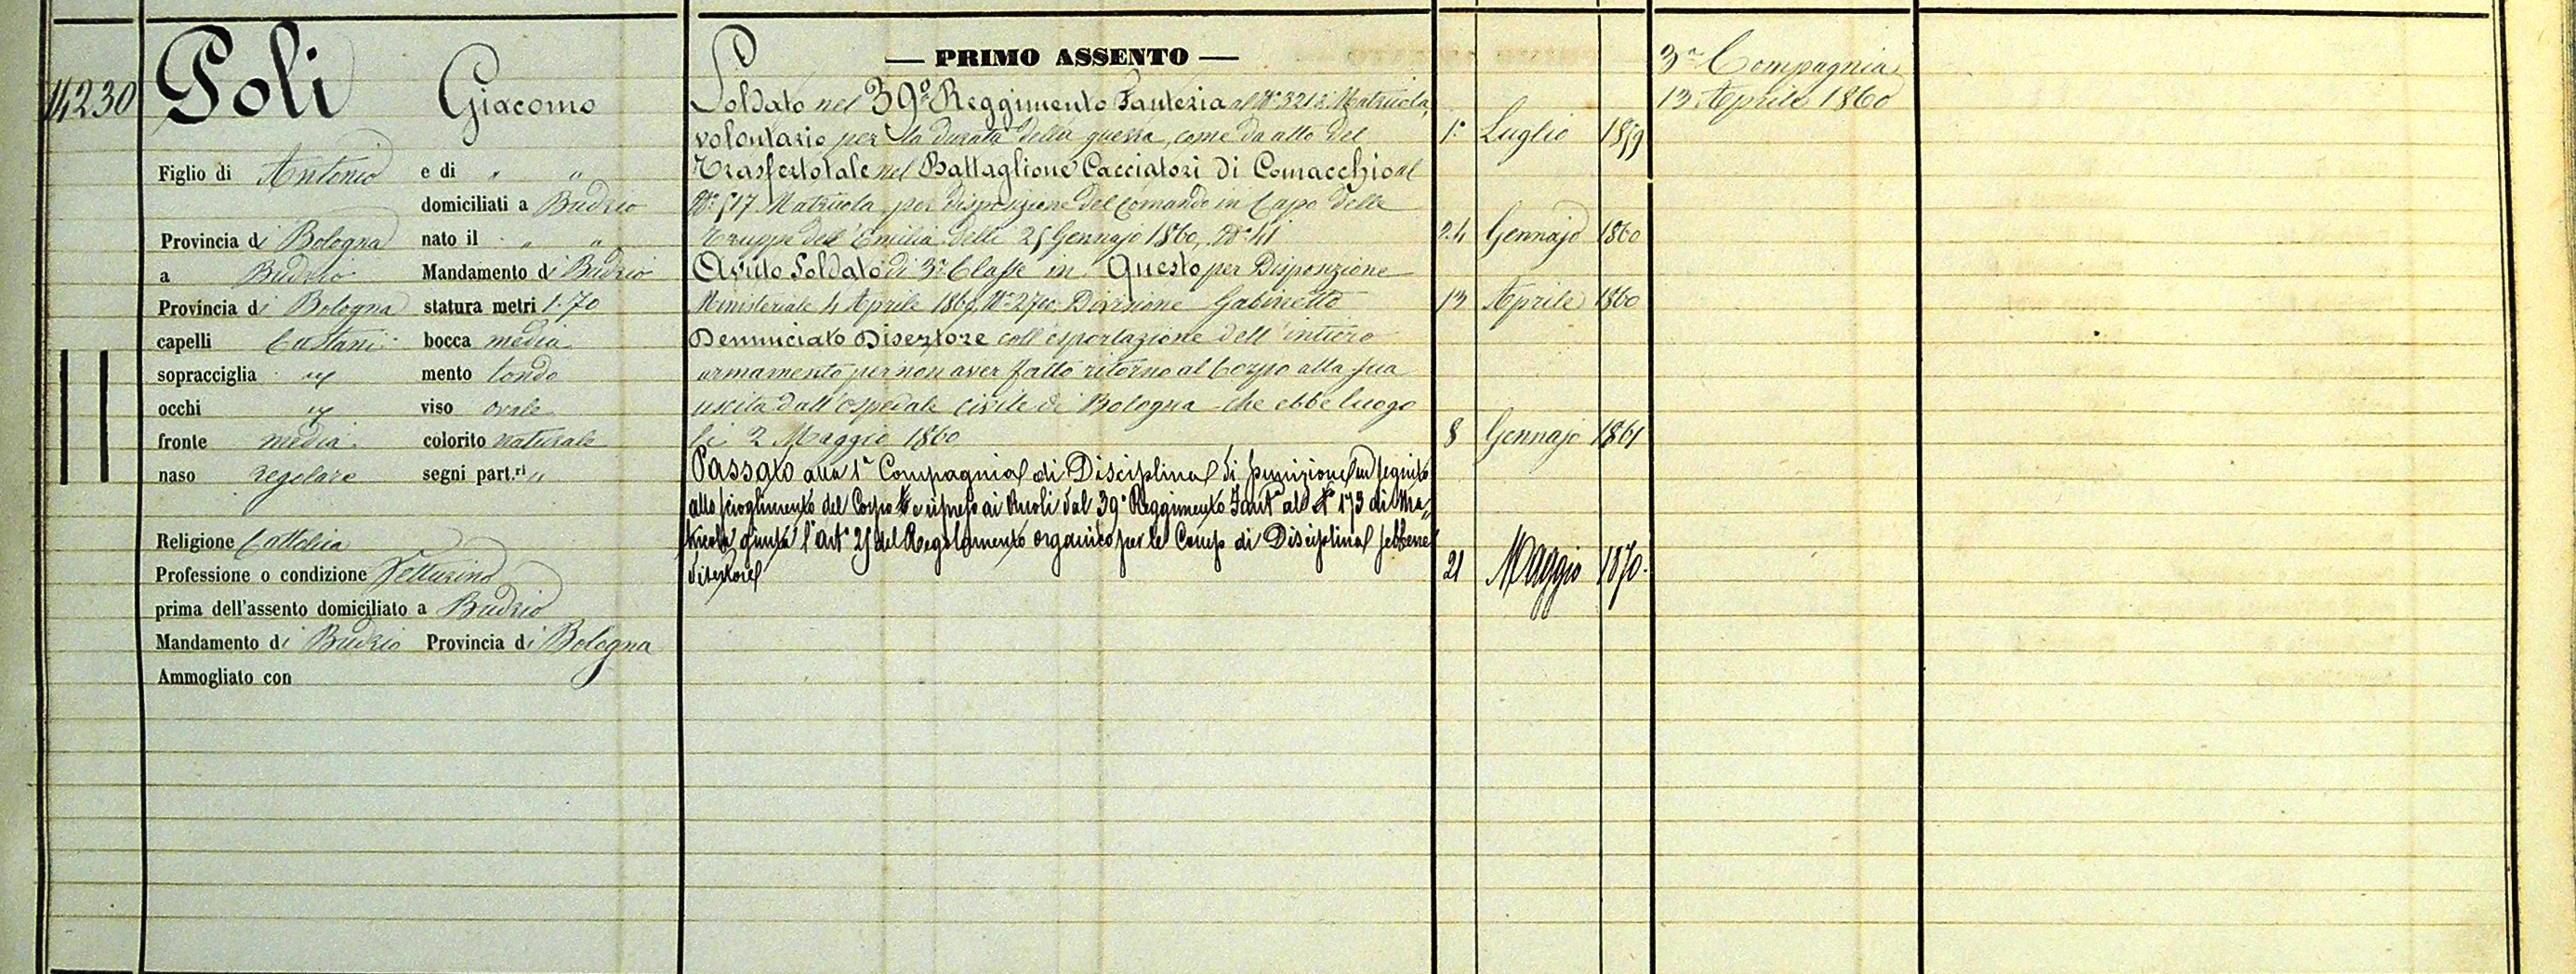 14230
Poli Giacomo
Figlio di Antonio e di " "
domiciliati a Budrio
Provincia di Bologna nato il " "
a Budrio Mandamento di Budrio
Provincia di Bologna statura metri 1.70
capelli Castani bocca media
sopracciglia mento tondo
occhi viso ovale
fronte media colorito naturale
naso regolare segni part.ri "
Religione Cattolica
Professione o condizione Vetturino
prima dell'assento domiciliato a Budrio
Mandamento di Budrio Provincia di Bologna
Ammogliato con
— PRIMO ASSENTO —
Soldato nel 39º Reggimento Fanteria al Nº 321 Matricola,
volontario per la durata della guerra, come da atto del 1º Luglio 1859
Trasferto tale nel Battaglione Cacciatori di Comacchio al
Nº 517 Matricola per disposizione del Comando in Capo delle
Truppe dell'Emilia delli 25 Gennajo 1860, Nº 41 24 Gennajo 1860
Avuto Soldato di 3ª Classe in Questo per Disposizione
Ministeriale 4 Aprile 1860, Divisione Gabinetto 13 Aprile 1860
Denunciato Disertore coll'esportazione dell'intiero
armamento per non aver fatto ritorno al Corpo alla sua
uscita dall'Ospedale civile di Bologna che ebbe luogo
li 2 Maggio 1860 8 Gennajo 1861
Passato alla 1ª Compagnia di Disciplina di punizione in seguito
allo scioglimento del Corpo e ripreso ai Ruoli dal 39º Reggimento Fantª al Nº 173 di Ma-
tricola giusta l'artº 25 del Regolamento organico per le Comp di Disciplina sebbene
disertore 21 Maggio 1870.
3ª Compagnia
13 Aprile 1860